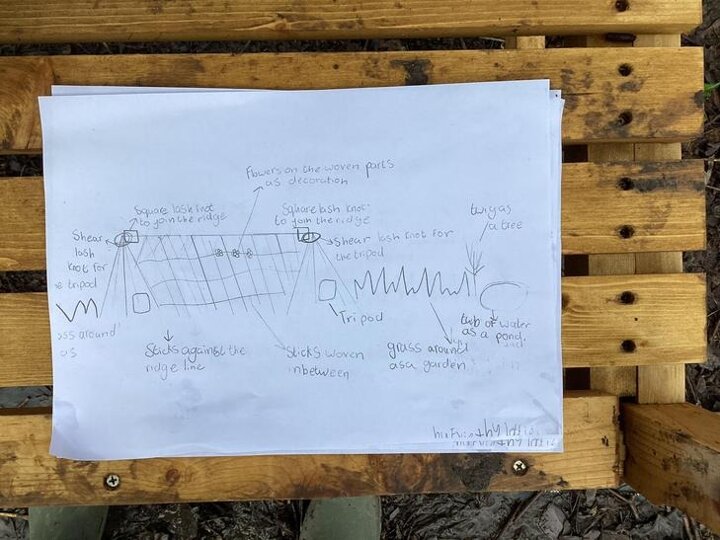 Flowers on the woven parts
as decoration
Square lash knot
to join the ridge
Square lash knot
to join the ridge
twig as
a tree
Shear
lash
knot for
tripod
Shear lash knot for
the tripod
Tripod
around
Sticks against the
ridge line
Sticks woven
inbetween
grass around
as a garden
tub of water
as a pond